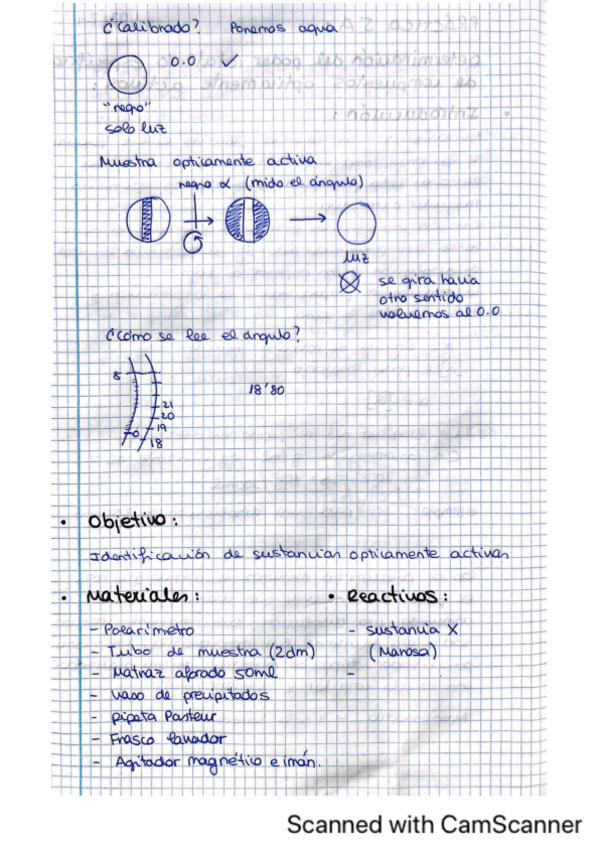 ¿Calibrado? Ponemos agua
0.0 ✓
"negro"
solo luz
Muestra opticamente activa
negro α (mido el ángulo)
luz
se gira hacia
otro sentido
volvemos al 0.0
¿Cómo se lee el ángulo?
8
18'80
21
20
0 19
18
• Objetivo:
Identificación de sustancias opticamente activas
• Materiales:
- Polarímetro
- Tubo de muestra (2dm)
- Matraz aforado 50ml
- vaso de precipitados
- pipeta Pasteur
- Frasco lavador
- Agitador magnético e imán.
• Reactivos:
- sustancia X
(Manosa)
-
Scanned with CamScanner